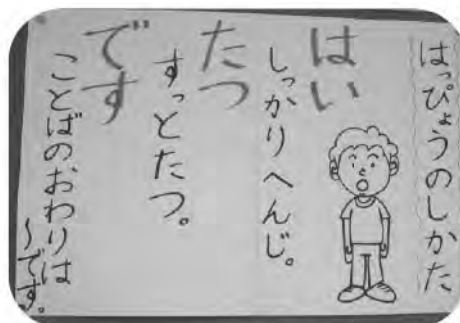 はっぴょうのしかた
はい
しっかりへんじ。
たつ
すっとたつ。
です
ことばのおわりは
～です。